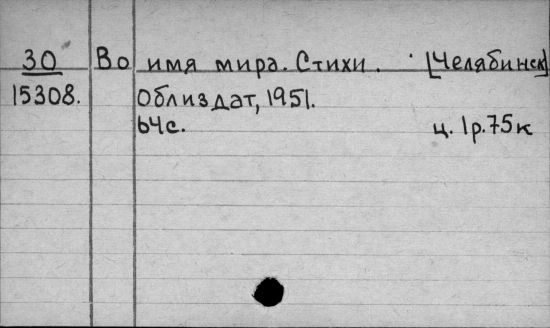 30 Во имя мира. Стихи. [Челябинск]
15308. Облиздат, 1951.
64с. ц. 1р.75к